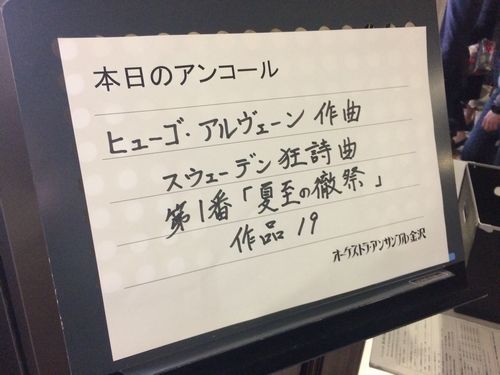 本日のアンコール
ヒューゴ・アルヴェーン 作曲
スウェーデン狂詩曲
第1番「夏至の徹祭」
作品 19
オーケストラ・アンサンブル金沢